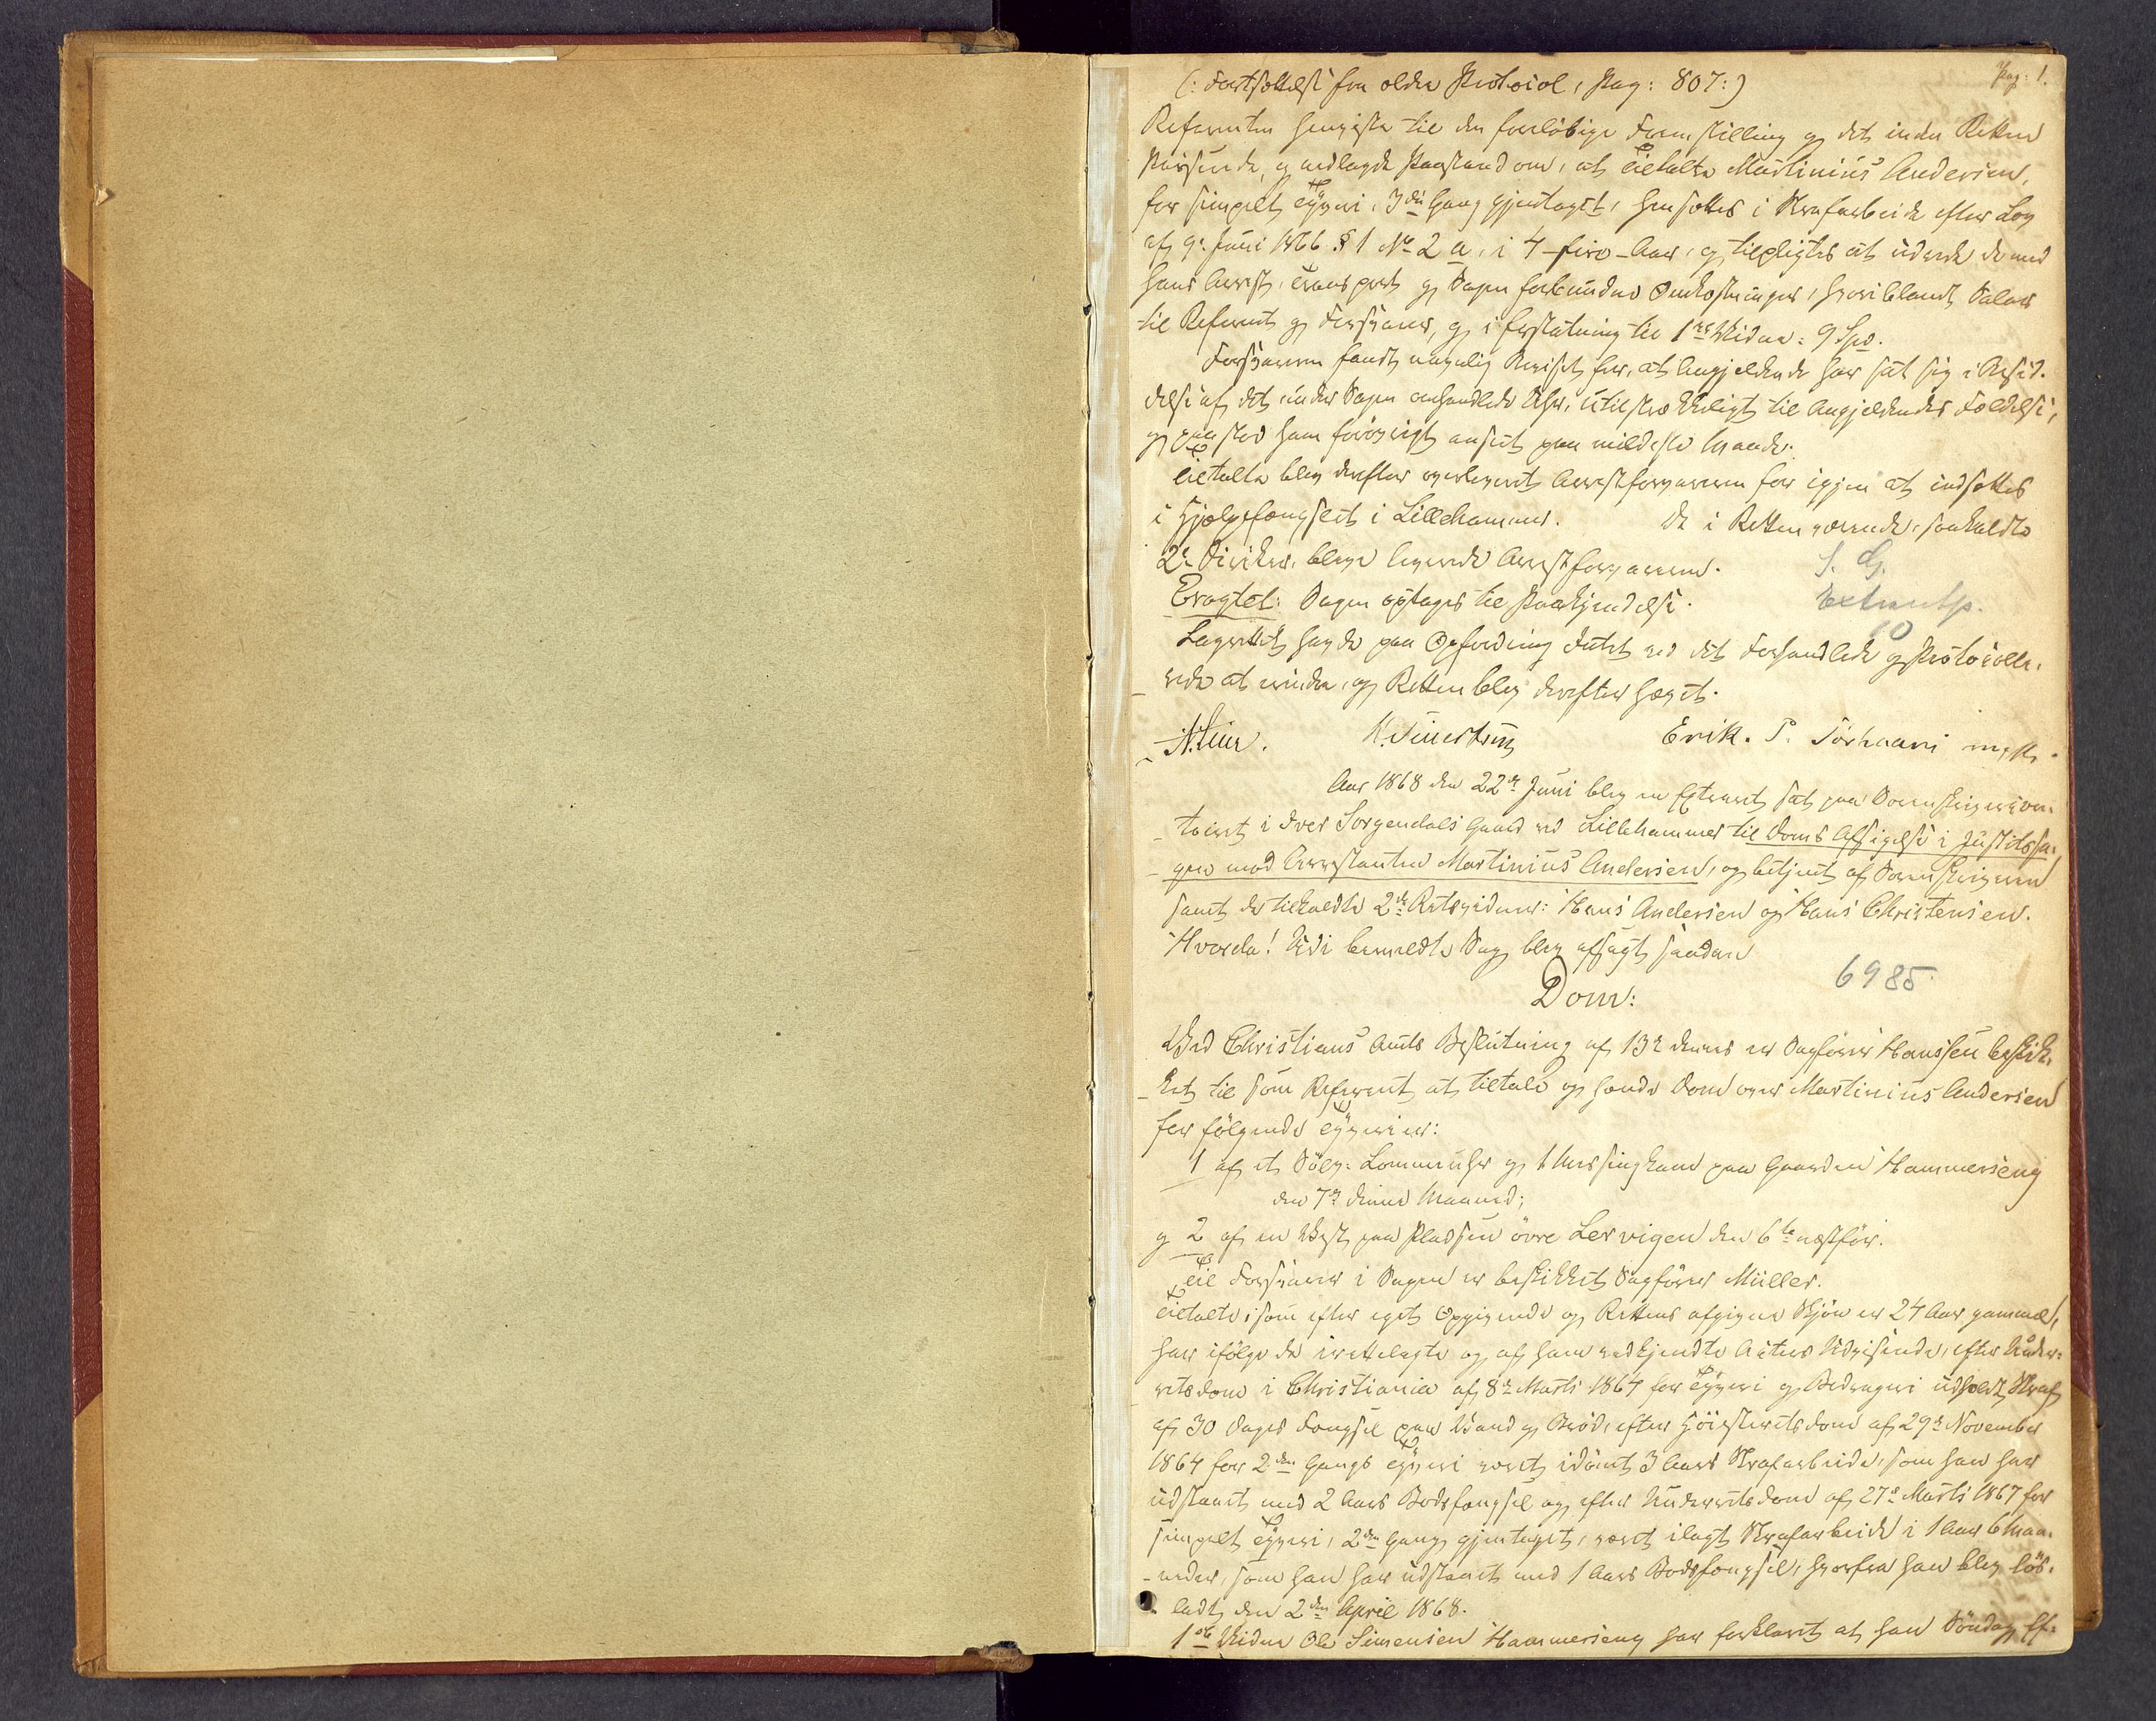 Pag: 1.
(: Fortsættelse fra ældre Protocol, Pag: 807:)
Referenten henviste til den foreløbige Fremstilling og det under Retten
Passerede, og nedlagde Paastand om, at Tiltalte Martinius Andersen,
for simpelt Tyveri, 3die Gang gjentaget, hensættes i Strafarbeide efter Lov
af 9de Juni 1866 § 1 No 2 a, i 4 -fire- Aar, og tilpligtes at udrede de med
hans Arrest, Transport og Sagen forbundne Omkostninger, hvoriblandt Salær
til Referent og Forsvarer, og i Erstatning til 1ste Vidne: 9 Spd.
Forsvareren fandt navnlig Beviset for, at Angjeldende har sat sig i Besid-
delse af det under Sagen omhandlede Uhr, utilstrækkeligt til Angjeldendes Fældelse,
og paastod ham forøvrigt anseet paa mildeste Maade.
Tiltalte blev derefter overleveret Arrestforvareren for igjen at indsættes
i Hjælpefængslet i Lillehammer. De i Retten værende, saakaldte
2de Piriker, bleve leverede Arrestforvareren.
S. G.
Eragtet: Sagen optages til Paakjendelse.
Extractp.
10
Lagrettet havde paa Opfordring Intet ved det Forhandlede og Protocolle-
rede at erindre, og Retten blev derefter hævet.
Erik. P. Sörhaani m. p.
Aar 1868 den 22de Juni blev en Extraret sat paa Sorenskrivercon-
toiret i Iver Sorgendals Gaard ved Lillehammer til Doms Afsigelse i Justitssa-
gen mod Arrestanten Martinius Andersen, og betjent af Sorenskriveren
samt de tilkaldte 2de Retsvidner: Hans Andersen og Hans Christensen.
Hvorda! Udi bemeldte Sag blev afsagt saadan
6985
Dom:
Ved Christians Amts Beslutning af 13de dennes er Sagfører Hanssen beskik-
ket til som Referent at tiltale og hænde Dom over Martinius Andersen
for følgende Tyverier:
1 af et Sølv-Lommeuhr og 1 Messingkam paa Gaarden Hammerseng
den 7de denne Maaned;
og 2 af en Vest paa Pladsen övre Lervigen den 6te næstfør.
Til Forsvarer i Sagen er beskikket Sagfører Müller.
Tiltalte, som efter eget Opgivende og Rettens afgivne Skjøn er 24 Aar gammel,
har ifølge de irettelagte og af ham vedkjendte Acters Udvisende, efter Under-
retsdom i Christiania af 8de Marts 1864 for Tyveri og Bedrageri udholdt Straf
af 30 Dages Fængsel paa Vand og Brød, efter Høiesteretsdom af 29de November
1864 for 2den Gangs Tyveri været idømt 3 Aars Strafarbeide, som han har
udstaaet med 2 Aars Bodsfængsel og efter Underretsdom af 27de Marts 1867 for
simpelt Tyveri, 2den Gang gjentaget, været ilagt Strafarbeide i 1 Aar 6 Maa-
neder, som han har udstaaet med 1 Aars Bodsfængsel, hvorfra han blev løs-
ladt den 2den April 1868.
1ste Vidne Ole Simensen Hammerseng har forklaret at han Søndag Ef-